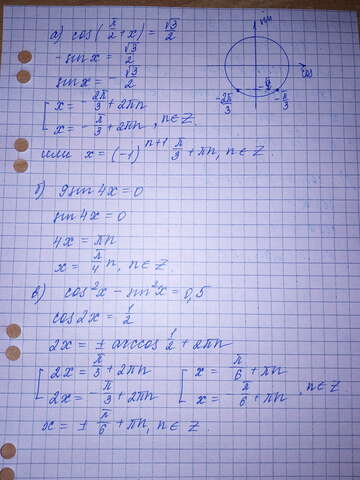 а) cos(π/2 + x) = √3/2
sin
- sin x = √3/2
cos
sin x = - √3/2
[ x = - 2π/3 + 2πn
- 2π/3
- π/3
x = - π/3 + 2πn, n ∈ Z.
или x = (-1)^(n+1) π/3 + πn, n ∈ Z.
б) 9 sin 4x = 0
sin 4x = 0
4x = πn
x = π/4 n, n ∈ Z.
в) cos²x - sin²x = 0,5
cos 2x = 1/2
2x = ± arccos 1/2 + 2πn
[ 2x = π/3 + 2πn [ x = π/6 + πn
2x = - π/3 + 2πn x = - π/6 + πn, n ∈ Z.
x = ± π/6 + πn, n ∈ Z.